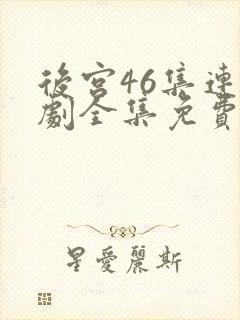 後宮46集連
劇全集免費
星愛麗斯